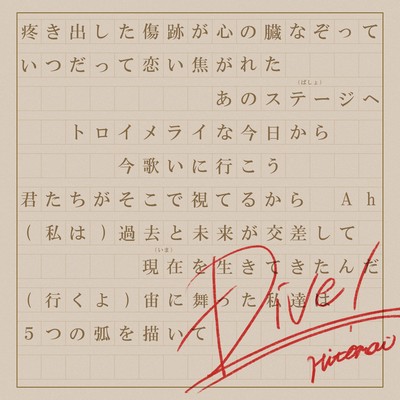 疼き出した傷跡が心の臓なぞって
いつだって恋い焦がれた
(ばしょ)
あのステージへ
トロイメライな今日から
今歌いに行こう
君たちがそこで視てるから Ah
(私は)過去と未来が交差して
(いま)
現在を生きてきたんだ
(行くよ)宙に舞った私達は
5つの弧を描いて
Dive!